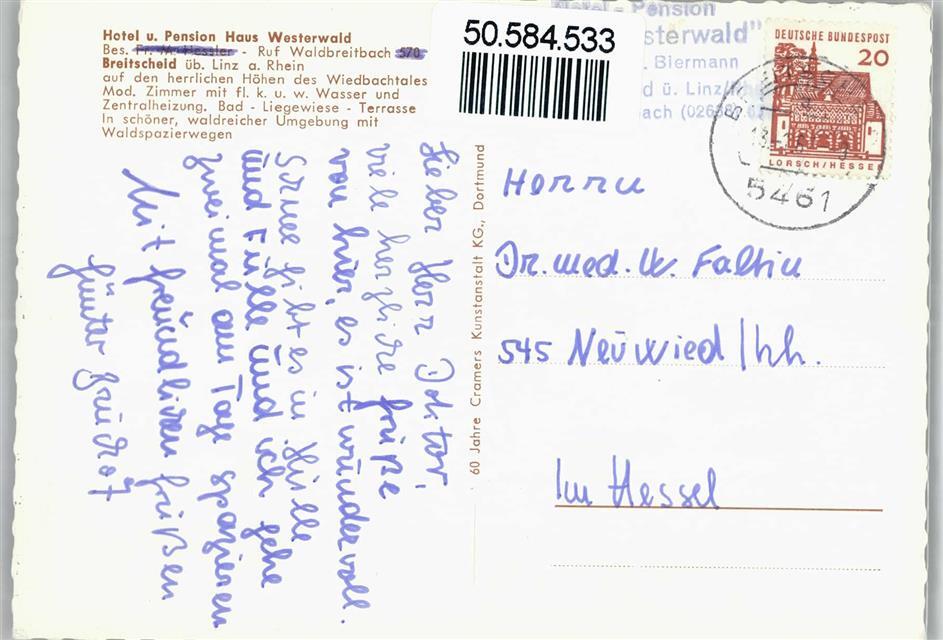 Hotel u. Pension Haus Westerwald
Bes. Fr. M. Hessler - Ruf Waldbreitbach 570
Breitscheid üb. Linz a. Rhein
auf den herrlichen Höhen des Wiedbachtales
Mod. Zimmer mit fl. k. u. w. Wasser und
Zentralheizung, Bad - Liegewiese - Terrasse
In schöner, waldreicher Umgebung mit
Waldspazierwegen
50.584.533
Hotel - Pension
sterwald"
. Biermann
d ü. Linz/Rh
bach (02638)
DEUTSCHE BUNDESPOST
20
LORSCH/HESSEN
5461
Lieber Herr Doktor,
viele herzliche Grüße
von hier, es ist wundervoll.
Schnee gibt es in Hülle
und Fülle und ich gehe
zweimal am Tage spazieren
Mit freundlichen Grüßen
Günter
60 Jahre Cramers Kunstanstalt KG., Dortmund
Herrn
Dr. med. W. Faltin
545 Neuwied/Rh.
Im Hessel